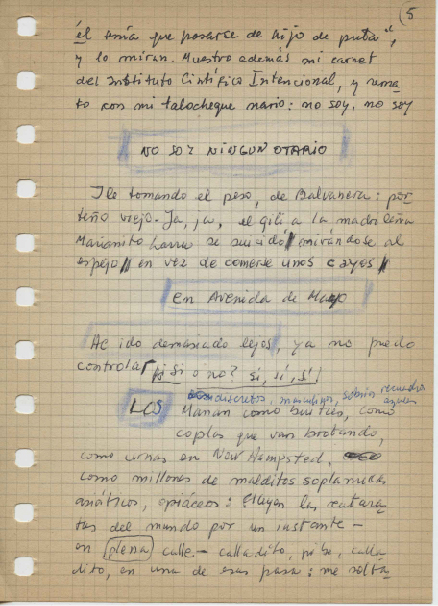 (5
él tenía que pasarse de hijo de puta",
y lo miran. Muestro además mi carnet
del Instituto Científico Intencional, y rema
to con mi talocheque nario: no soy, no soy
NO SOY NINGUN OTARIO
Ile tomando el peso, de Balvanera: por
teño viejo. Ja, ja, el gil a la madrileña
Marianito Larra se suicidó mirándose al
espejo en vez de comerse unos cayos
En Avenida de Mayo
He ido demasiado lejos, ya no puedo
controlar ¿Si o no? sí, sí, sí
discretos, masculinos, sobrios recuadros
azules
LOS
Manan como buitres, como
coplas que van brotando,
como urnas en New Hempsted.
como millones de malditos soplamocos
asiáticos, opiáceos: fluyen las catara
tas del mundo por un instante —
en plena calle. — calladito, pibe, calla
dito, en una de esas pasa: me solta